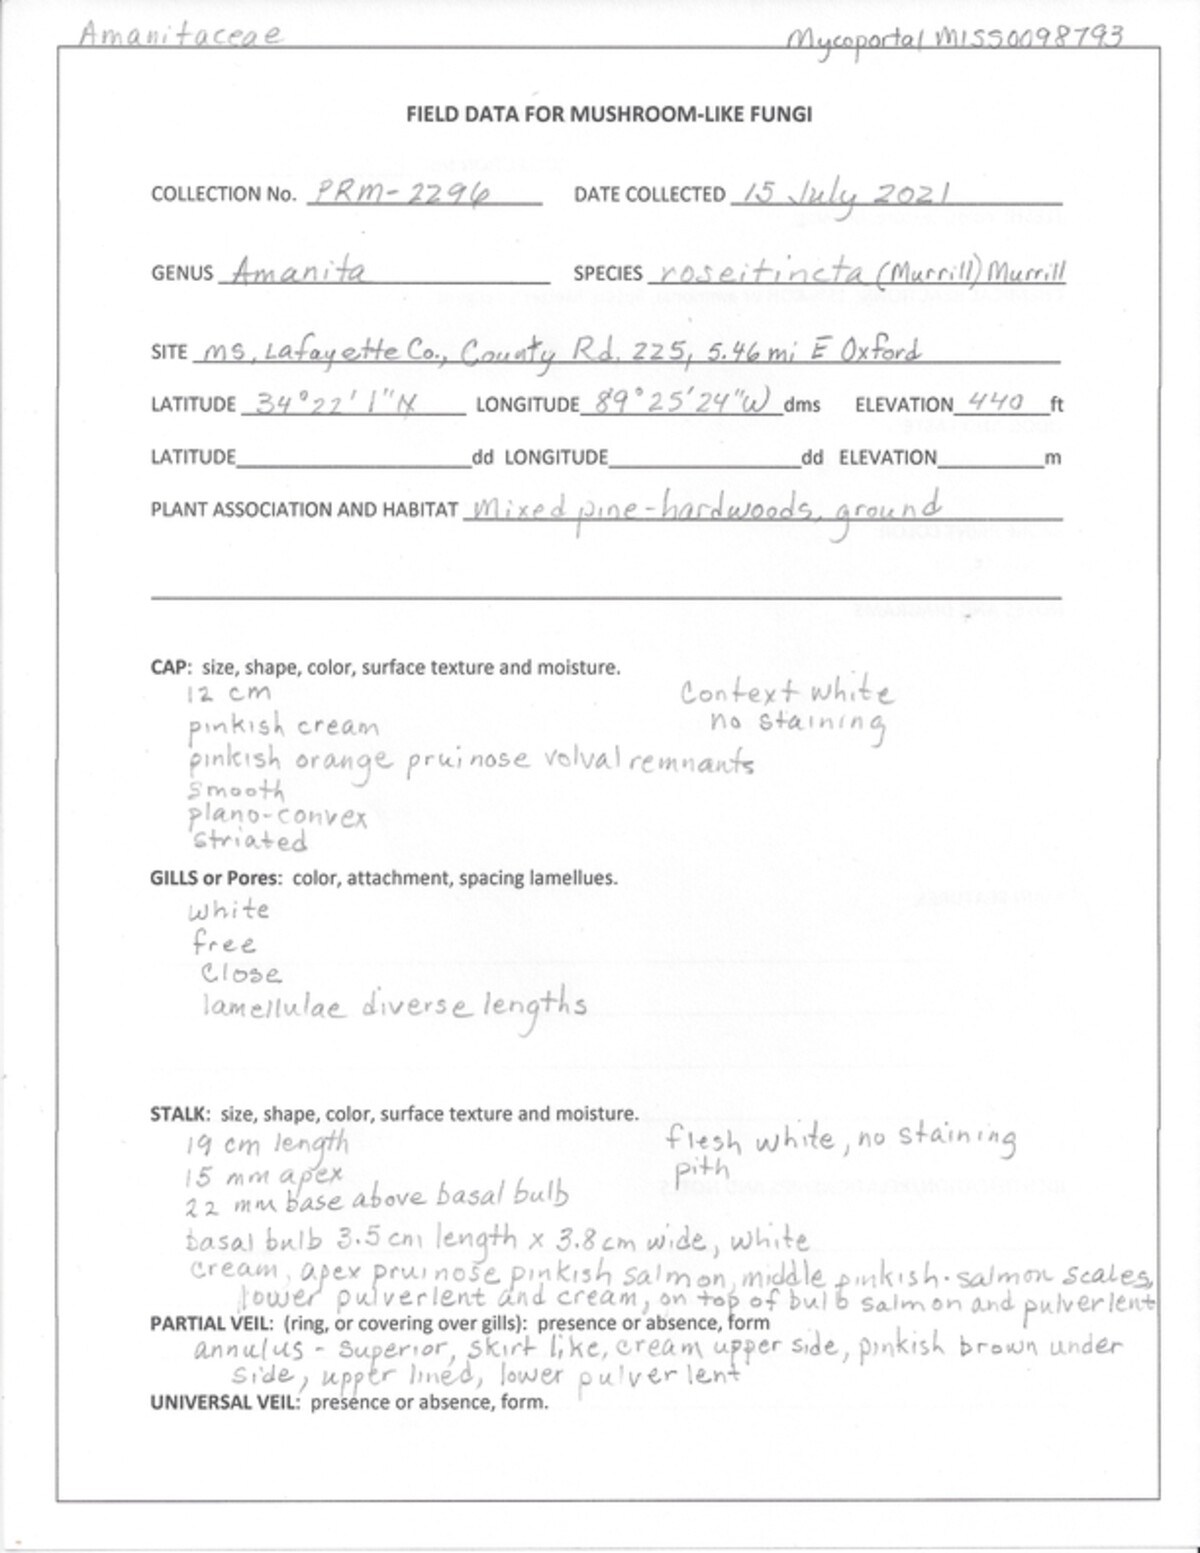 Amanitaceae
Mycoportal MISS0098793
FIELD DATA FOR MUSHROOM-LIKE FUNGI
COLLECTION No. PRM-2296 DATE COLLECTED 15 July 2021
GENUS Amanita SPECIES roseitincta (Murrill) Murrill
SITE MS, Lafayette Co., County Rd. 225, 5.46 mi E Oxford
LATITUDE 34°22'1"N LONGITUDE 89°25'24"W dms ELEVATION 440 ft
LATITUDE dd LONGITUDE dd ELEVATION m
PLANT ASSOCIATION AND HABITAT Mixed pine-hardwoods, ground
CAP: size, shape, color, surface texture and moisture.
12 cm Context white
pinkish cream no staining
pinkish orange pruinose volval remnants
smooth
plano-convex
striated
GILLS or Pores: color, attachment, spacing lamellues.
white
free
Close
lamellulae diverse lengths
STALK: size, shape, color, surface texture and moisture.
19 cm length flesh white, no staining
15 mm apex pith
22 mm base above basal bulb
basal bulb 3.5 cm length x 3.8 cm wide, white
cream, apex pruinose pinkish salmon, middle pinkish-salmon scales,
lower pulverlent and cream, on top of bulb salmon and pulverlent
PARTIAL VEIL: (ring, or covering over gills): presence or absence, form
annulus - superior, skirt like, cream upper side, pinkish brown under
side, upper lined, lower pulverlent
UNIVERSAL VEIL: presence or absence, form.